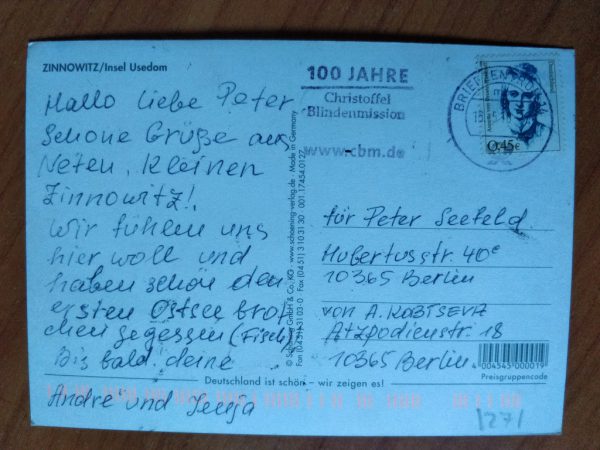 ZINNOWITZ/Insel Usedom
Hallo liebe Peter
schone Grüße aus
Neten, kleinen
Zinnowitz!
Wir fühlen uns
hier woll und
haben schön den
ersten Ostsee bröt
chen gegessen (Fisch)
Bis bald. deine
Andre und Senja
100 JAHRE
Christoffel
Blindenmission
www.cbm.de
BRIEFZENTRUM
0,45€
© Schoening GmbH & Co. KG · www.schoening-verlag.de · Made in Germany
Fon (04 51) 3 10 31-03 · Fax (04 51) 310 31 30 001.17454.0127
für Peter Seefeld
Hubertusstr. 40c
10365 Berlin
von A. KOBTSEVA
Atzpodienstr. 18
10365 Berlin
4 004545 000019
Preisgruppencode
Deutschland ist schön – wir zeigen es!
127/